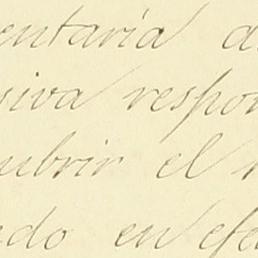 entaría a
siva respon
ubrir el
ndo en efe